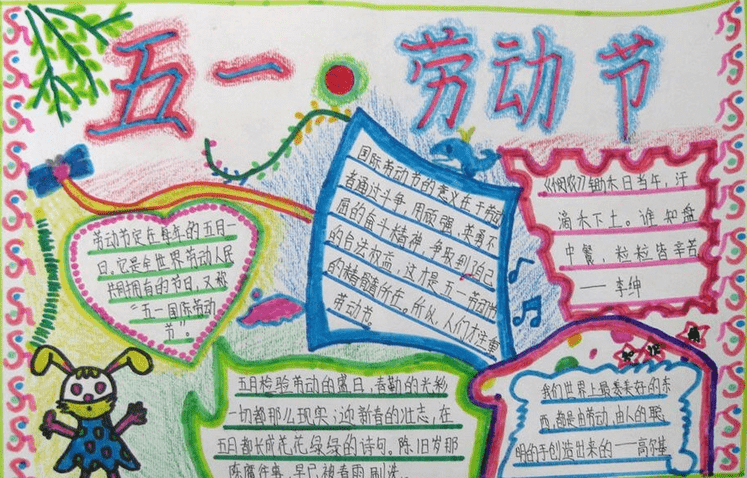 五一·劳动节
劳动节定在每年的五月一
日,它是全世界劳动人民
共同拥有的节日,又被称
“五一国际劳动
节”。
国际劳动节的意义在于劳动
者通过斗争,用顽强、英勇不
屈的奋斗精神,争取到了自己
的合法权益,这才是五一劳动节
的精髓所在。所以,人们才注重
劳动节。
《悯农》锄禾日当午,汗
滴禾下土。谁知盘
中餐,粒粒皆辛苦
——李绅
五月检验劳动的盛日,春勤的光彩
一切都那么现实;迎新春的壮志,在
五月都长成花花绿绿的诗句。陈旧岁那
早已被春雨刷洗
我们世界上最美好的东
西,都是由劳动,由人的聪
明的手创造出来的——高尔基